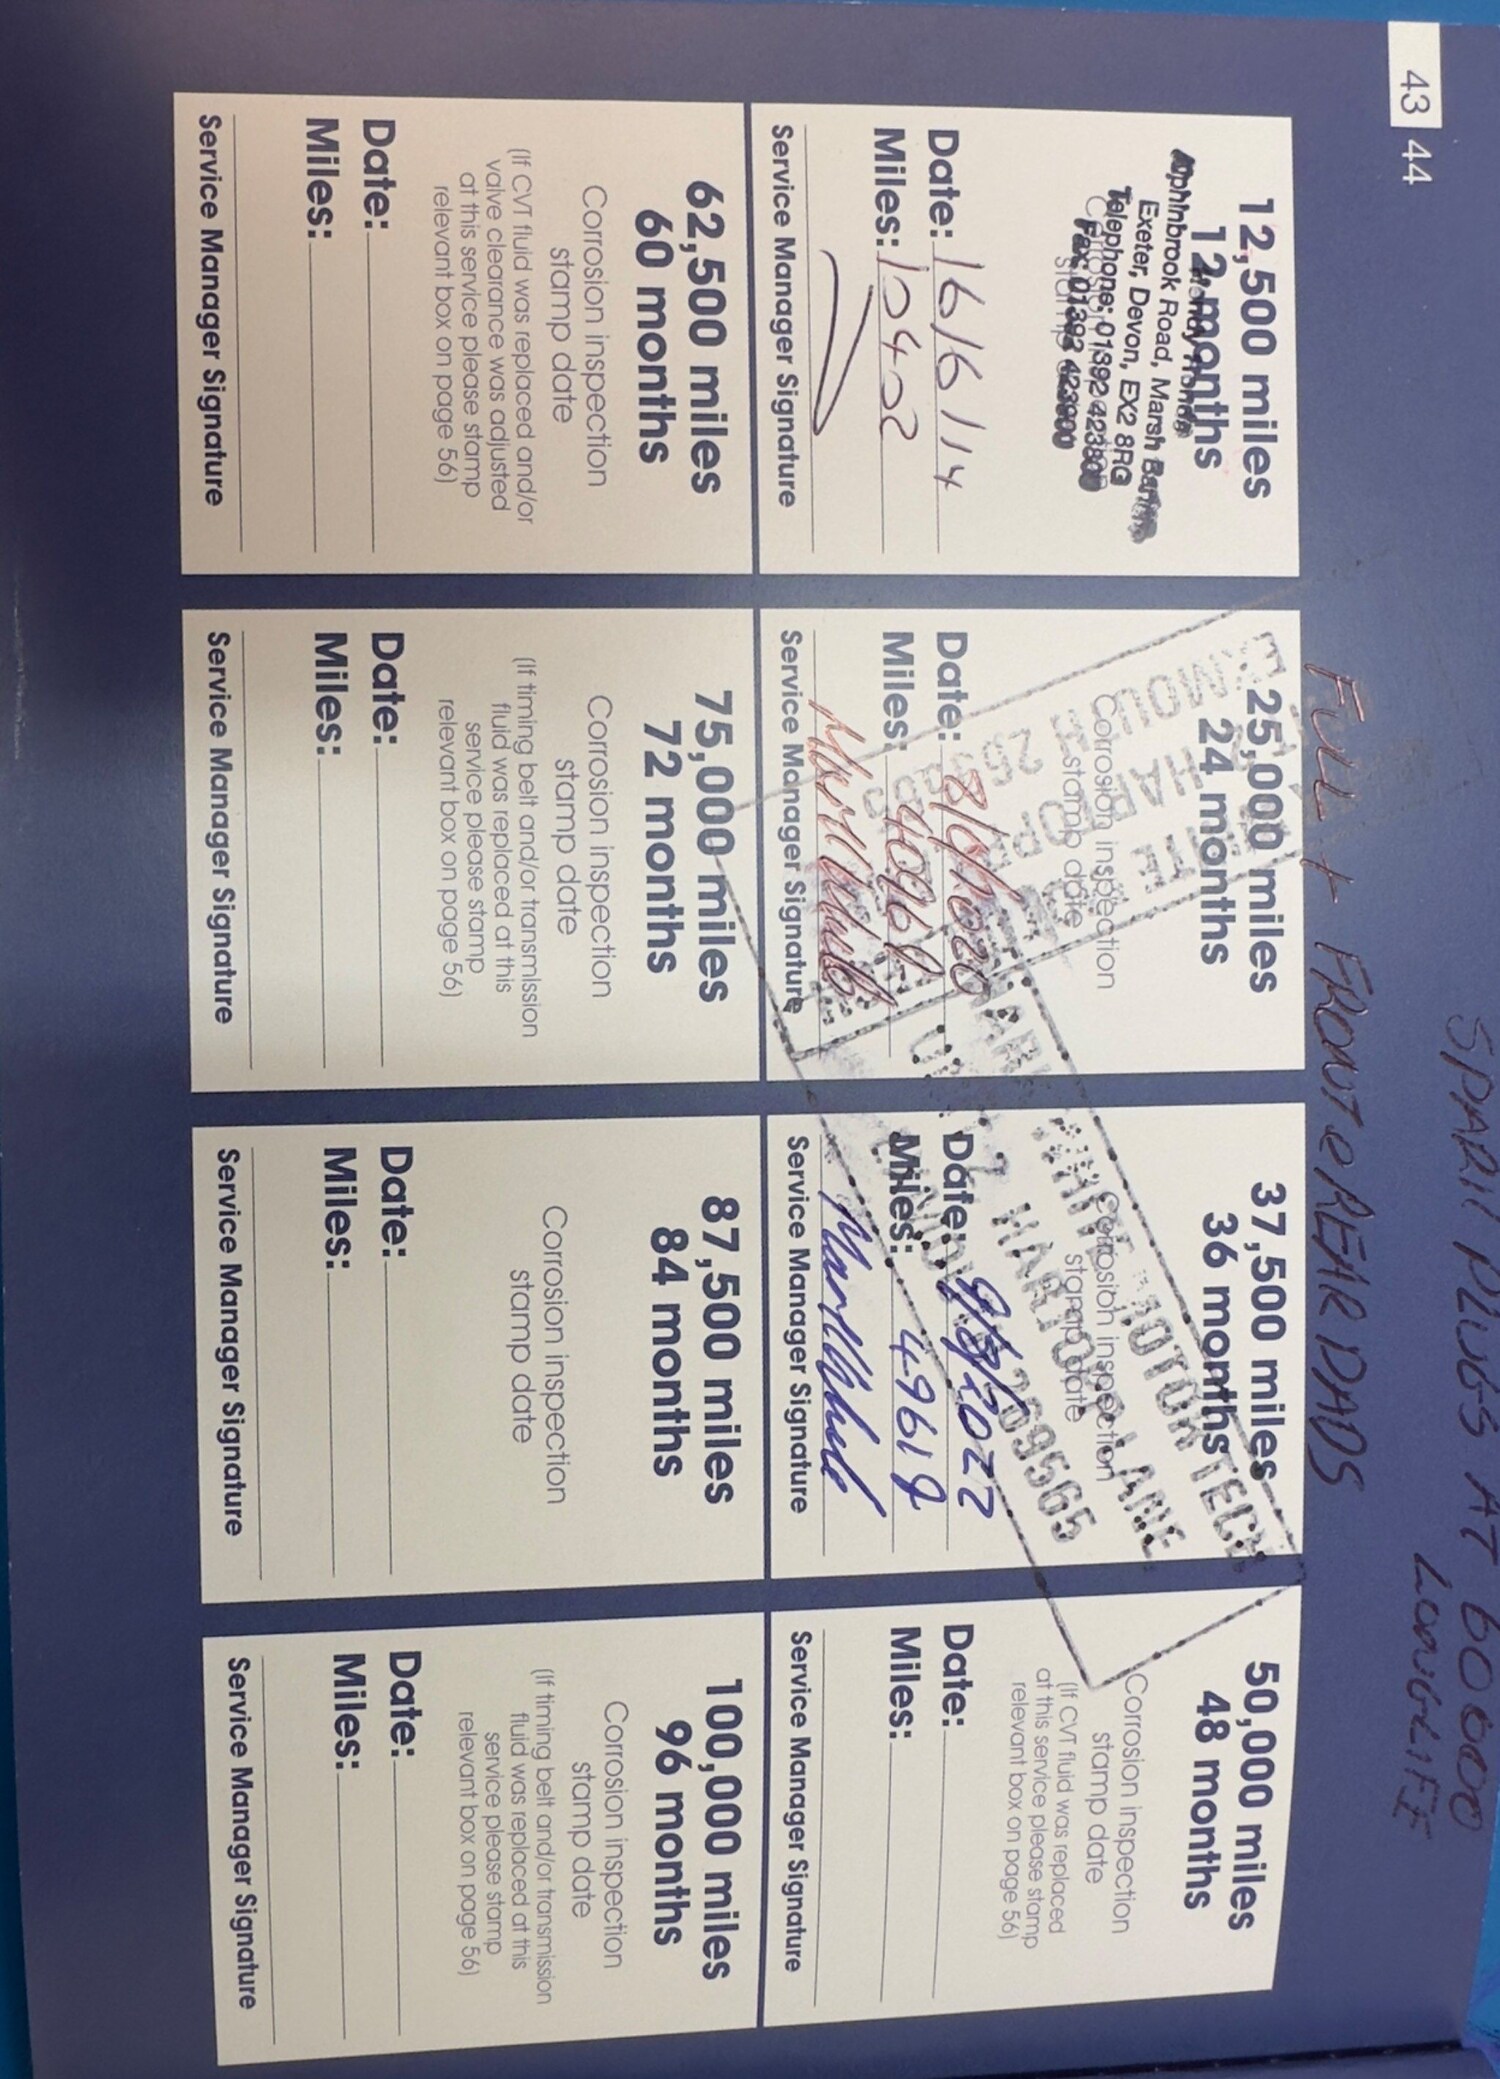 43 44
SPARK PLUGS AT 60 000
LONGLIFE
FULL + FRONT & REAR PADS
12,500 miles
12 months
Hendy Honda
Alphinbrook Road, Marsh Barton
Exeter, Devon, EX2 8RG
Telephone: 01392 423800
Fax: 01392 423900
Date: 16/6/14
Miles: 10402
Service Manager Signature
25,000 miles
24 months
Corrosion inspection
stamp date
Date:
Miles:
Service Manager Signature
37,500 miles
36 months
Corrosion inspection
stamp date
WHITE MOTOR TECH
2 HARTOPP LANE
EXMOUTH 269565
Date: 9/8/2022
Miles: 49619
Service Manager Signature
50,000 miles
48 months
Corrosion inspection
stamp date
(If CVT fluid was replaced
at this service please stamp
relevant box on page 56)
Date:
Miles:
Service Manager Signature
62,500 miles
60 months
Corrosion inspection
stamp date
(If CVT fluid was replaced and/or
valve clearance was adjusted
at this service please stamp
relevant box on page 56)
Date:
Miles:
Service Manager Signature
75,000 miles
72 months
Corrosion inspection
stamp date
(If timing belt and/or transmission
fluid was replaced at this
service please stamp
relevant box on page 56)
Date:
Miles:
Service Manager Signature
87,500 miles
84 months
Corrosion inspection
stamp date
Date:
Miles:
Service Manager Signature
100,000 miles
96 months
Corrosion inspection
stamp date
(If timing belt and/or transmission
fluid was replaced at this
service please stamp
relevant box on page 56)
Date:
Miles:
Service Manager Signature